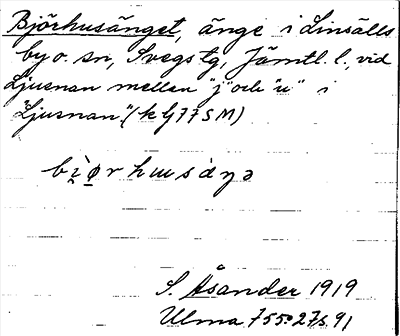 Björhusänget, änge i Linsälls
by o. sn, Svegs tg, Jämtl. l., vid
Ljusnan mellan "j" och "u" i
"Ljusnan" (k bl 77 S M)
S. Åsander 1919
Ulma 755:27 s. 91